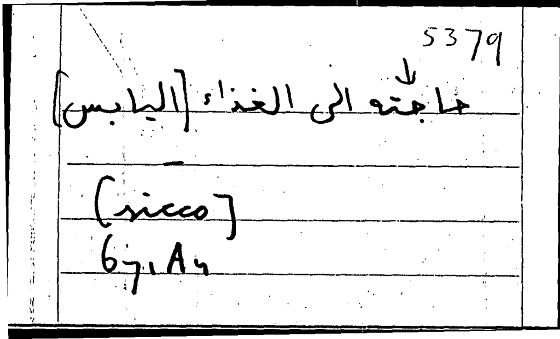 5379
حاجته الى الغذاء [اليابس]
[sicco]